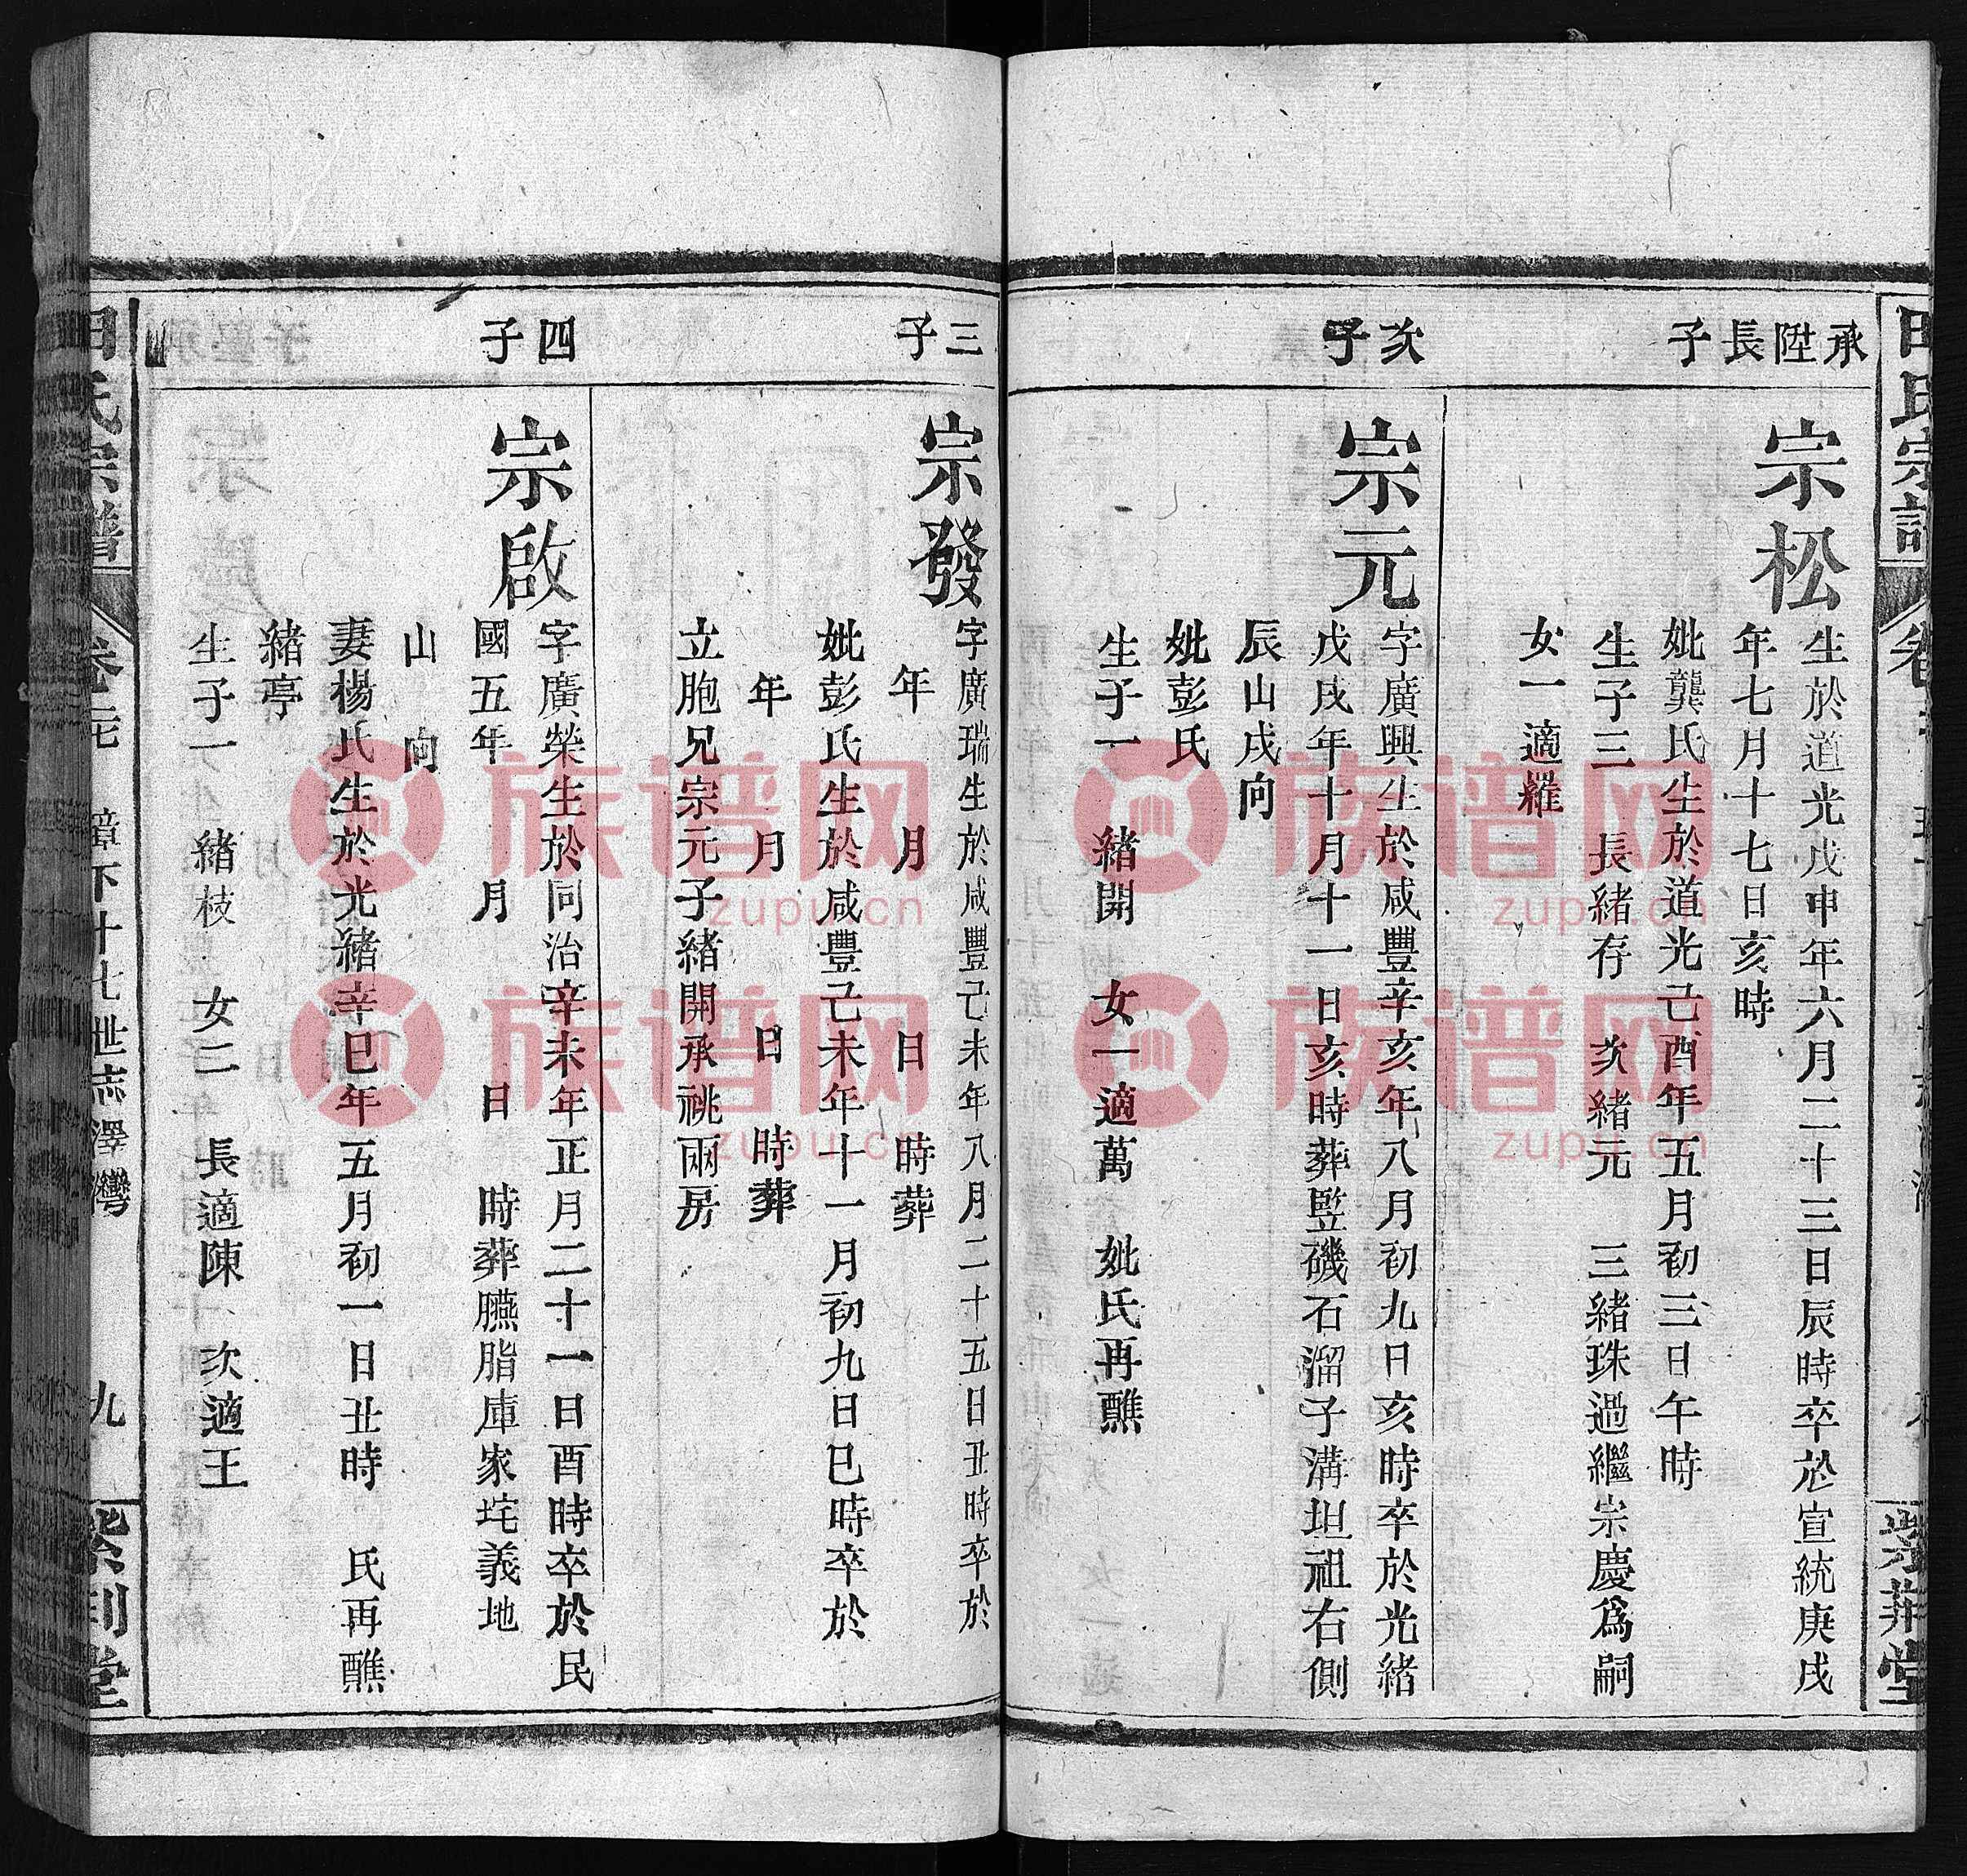 田氏宗譜
紫荊堂
承陞長子
宗松
生於道光戊申年六月二十三日辰時卒於宣統庚戌
年七月十七日亥時
妣龔氏生於道光己酉年五月初三日午時
生子三 長緒存 次緒元 三緒珠過繼宗慶爲嗣
女一適羅
次子
宗元
字廣興生於咸豐辛亥年八月初九日亥時卒於光緒
戊戌年十月十一日亥時葬監磯石溜子溝坦祖右側
辰山戌向
妣彭氏
生子一 緒開 女一適萬 妣氏再醮
三子
宗發
字廣瑞生於咸豐己未年八月二十五日丑時卒於
年 月 日 時葬
妣彭氏生於咸豐己未年十一月初九日巳時卒於
年 月 日 時葬
立胞兄宗元子緒開承祧兩房
四子
宗啟
字廣榮生於同治辛未年正月二十一日酉時卒於民
國五年 月 日 時葬臙脂庫家垞義地
山 向
妻楊氏生於光緒辛巳年五月初一日丑時 氏再醮
緒亭
生子一 緒枝 女二 長適陳 次適王
田氏宗譜
卷元 璋下十七世志澤灣
九
紫荊堂
族谱网
zupu.cn
族谱网
zupu.cn
族谱网
zupu.cn
族谱网
zupu.cn